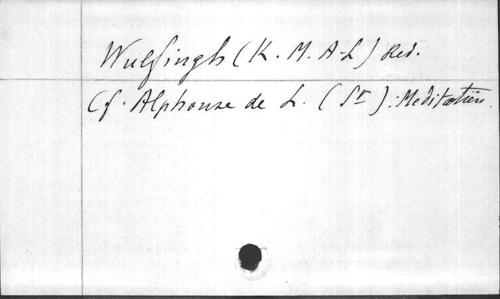 Wulfingh (K. M. A-L) Red.
Cf. Alphonse de L. (St). Meditatiën